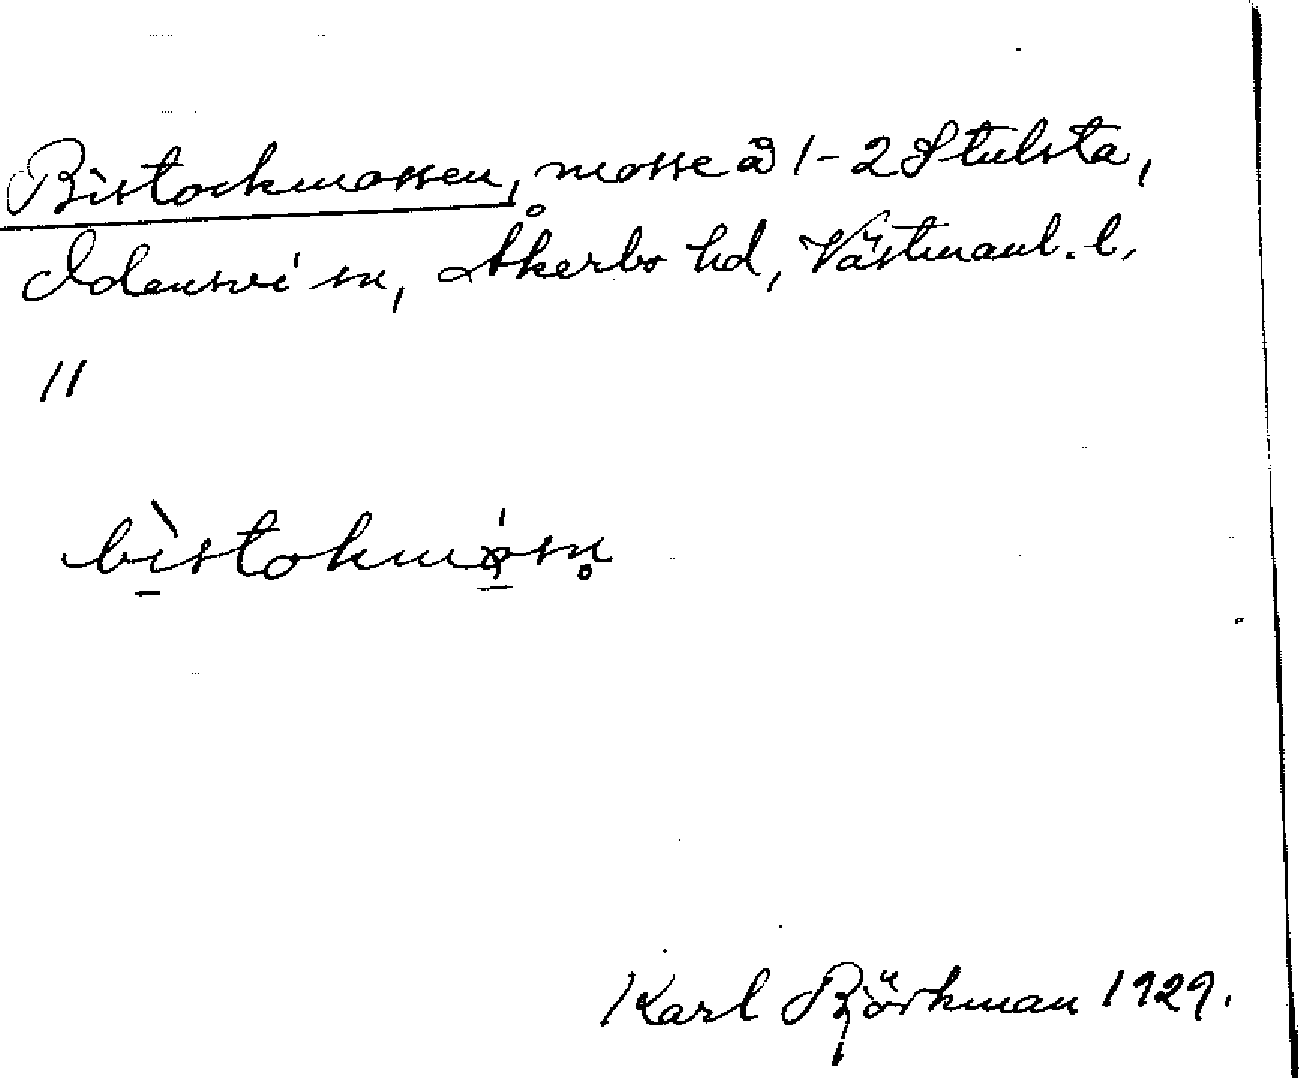 Bistockmossen, mosse å 1-2 Stulsta,
Odensvi sn, Åkerbo hd, Västmanl. l.
11
bìstokmòsn̥
Karl Björkman 1929.